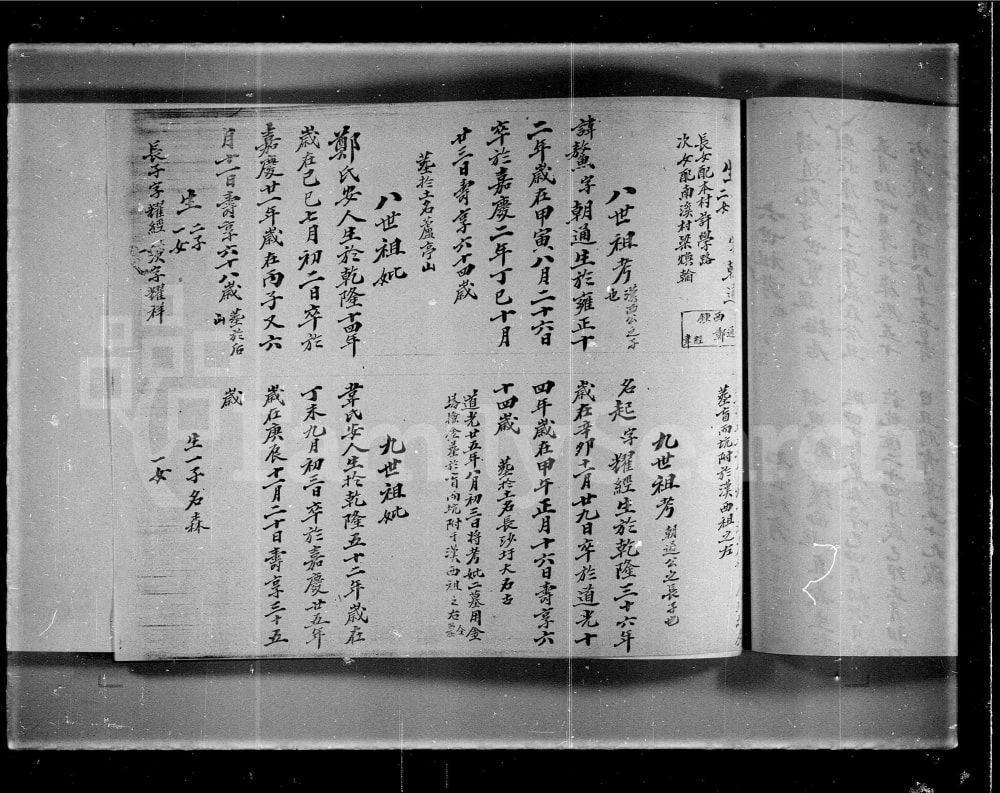 生二女
長女配本村許學路
次女配南溪村梁煥翰
八世祖考 漢西公之子也
諱鰲字朝通生於雍正十
二年歲在甲寅八月二十六日
卒於嘉慶二年丁巳十月
廿三日壽享六十四歲
墓於土名蘆亭山
八世祖妣
鄭氏安人生於乾隆十四年
歲在己巳七月初二日卒於
嘉慶廿一年歲在丙子又六
月十一日壽享六十八歲 墓於后山
生 二子 一女
長子字耀經 次字耀祥
墓首向坑附於漢西祖之左
九世祖考 朝通公之長子也
名起字耀經生於乾隆三十六年
歲在辛卯十一月廿九日卒於道光十
四年歲在甲午正月十六日壽享六
十四歲 墓於土名長沙圩大石古
道光廿五年八月初三日將考妣二墓用金
塔撿金墓於首向坑附于漢西祖之右
九世祖妣
韋氏安人生於乾隆五十二年歲在
丁未九月初三日卒於嘉慶廿五年
歲在庚辰十一月二十日壽享三十五
歲
生一子名森
一女
FamilySearch